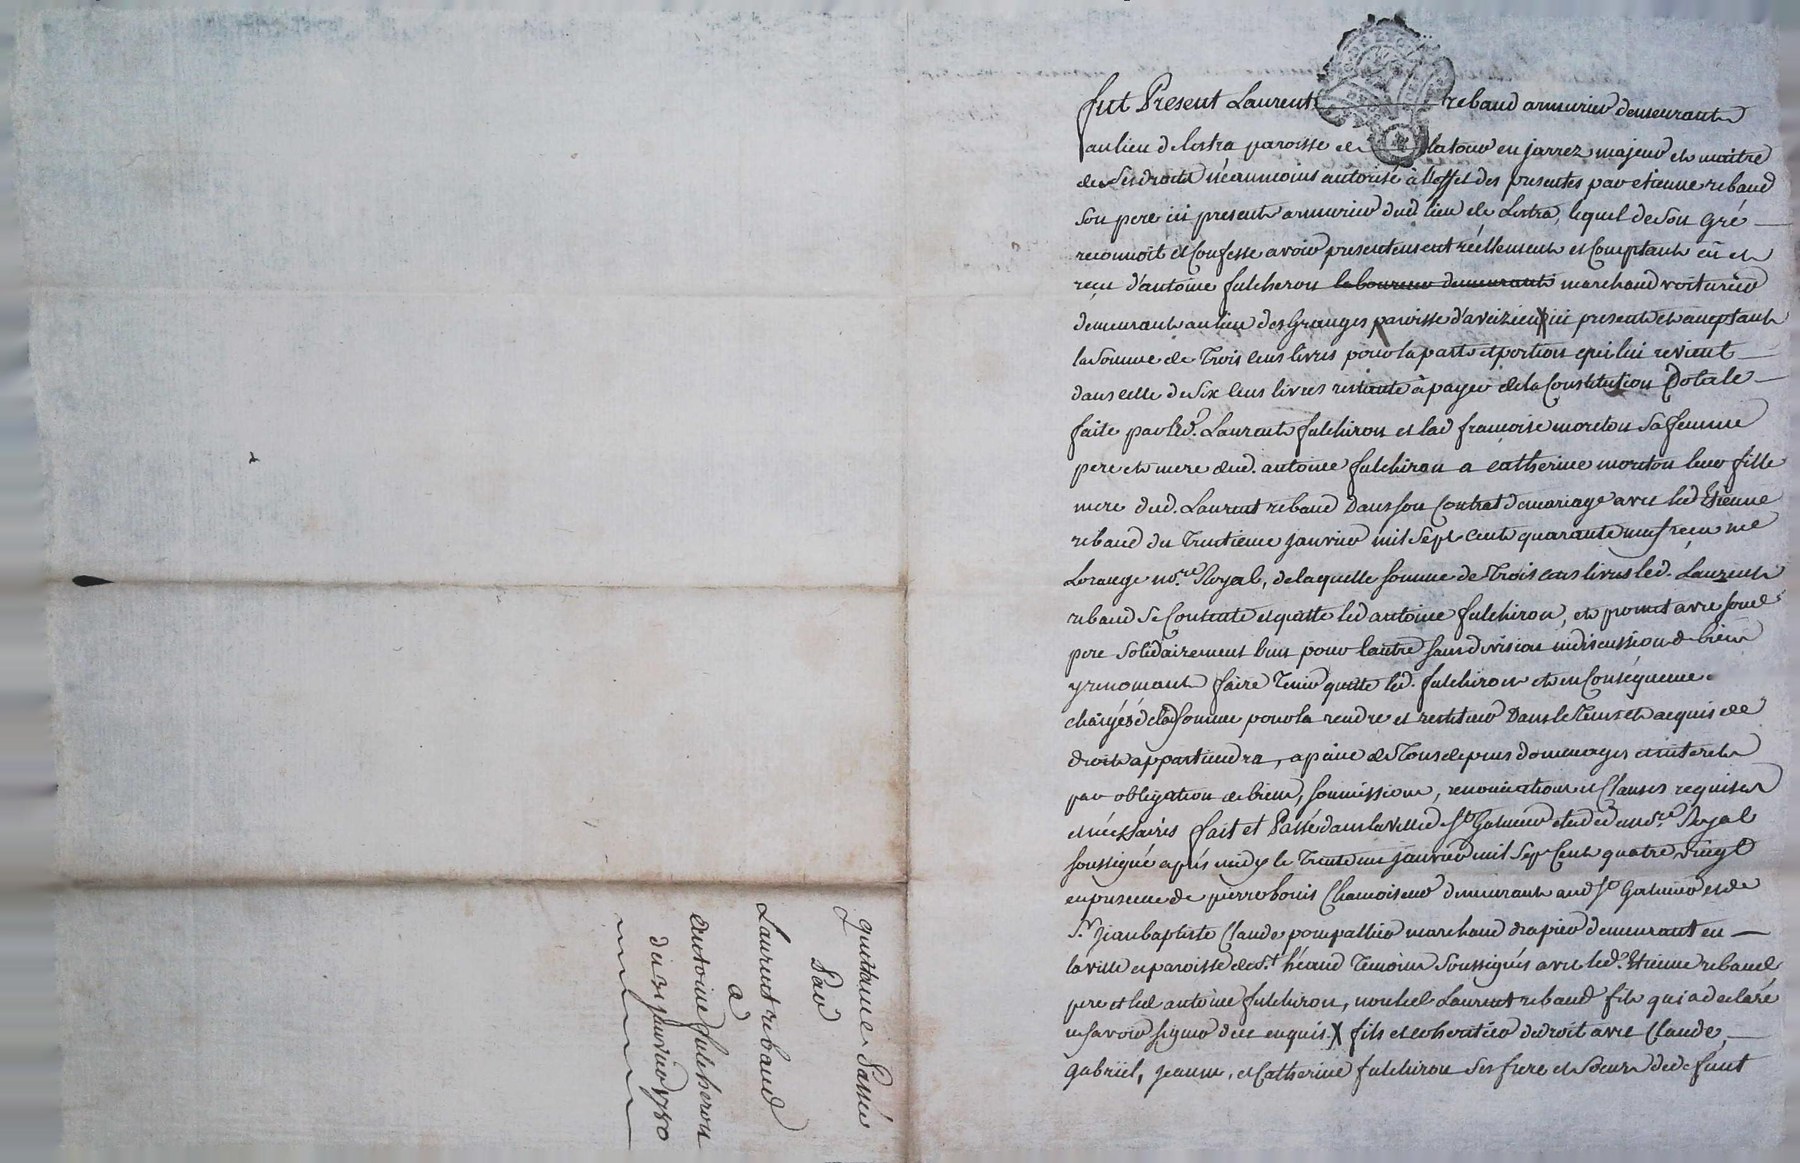 fut Present Laurent rebaud armurier demeurant
au lieu de lostra paroisse de latour en jarrez majeur et maitre
de ses droits néanmoins autorisé à l'effet des presentes par etienne rebaud
son pere ici present armurier dud lieu de Lostra, lequel de son gré
reconnoit et Confesse avoir presentement réellement et Comptant eü et
reçu d'antoine fulcheron laboureur demeurant marchand voiturier
demeurant au lieu des Granges paroisse d'aveizieu X ici present et acceptant
la somme de Trois cens livres pour la part et portion qui lui revient
dans celle de Six Cens livres restante à payer de la Constitution Dotale
faite par led. Laurent fulchiron et lad françoise moreton sa femme
pere et mere dud. antoine fulchiron a catherine moreton leur fille
mere dud. Laurent rebaud Dans son Contrat de mariage avec led Etienne
rebaud du Trentieme janvier mil Sept Cent quarante neuf reçu me
Lorange nore Royal, de laquelle somme de Trois cens livres led. Laurent
rebaud se Contente et quitte led antoine fulchiron, et promet avec sond
pere solidairement l'un pour l'autre sans division ni discussion de biens
y renonçant faire Tenir quitte led. fulchiron et en Conséquence
chargés de lad somme pour la rendre et restituer Dans le Tems et a qui de
droit appartiendra, a peine de Tous depens dommages et interets
par obligation de biens, soumissions, renonciations et Clauses requises
et nécessaires fait et Passé dans la ville de St Galmier etude du nore Royal
soussigné après midy le Trente un janvier mil Sept Cent quatre vingt
en presence de pierre bouis Chamoiseur demeurant aud St Galmier et de
Sr jean baptiste Claude pompallier marchand drapier demeurant en
la ville et paroisse de St héand Temoins Soussignés avec led. Etienne rebaud
pere et led antoine fulchiron, non led Laurent rebaud fils qui a declaré
ne savoir signer de ce enquis. X fils et coheritier de droit avec Claude,
Gabriel, jeanne, et Catherine fulchiron ses frere et soeurs dud defunt
quittance Passée
Par
Laurent rebaud
a
antoine fulcheron
du 31 janvier 1780